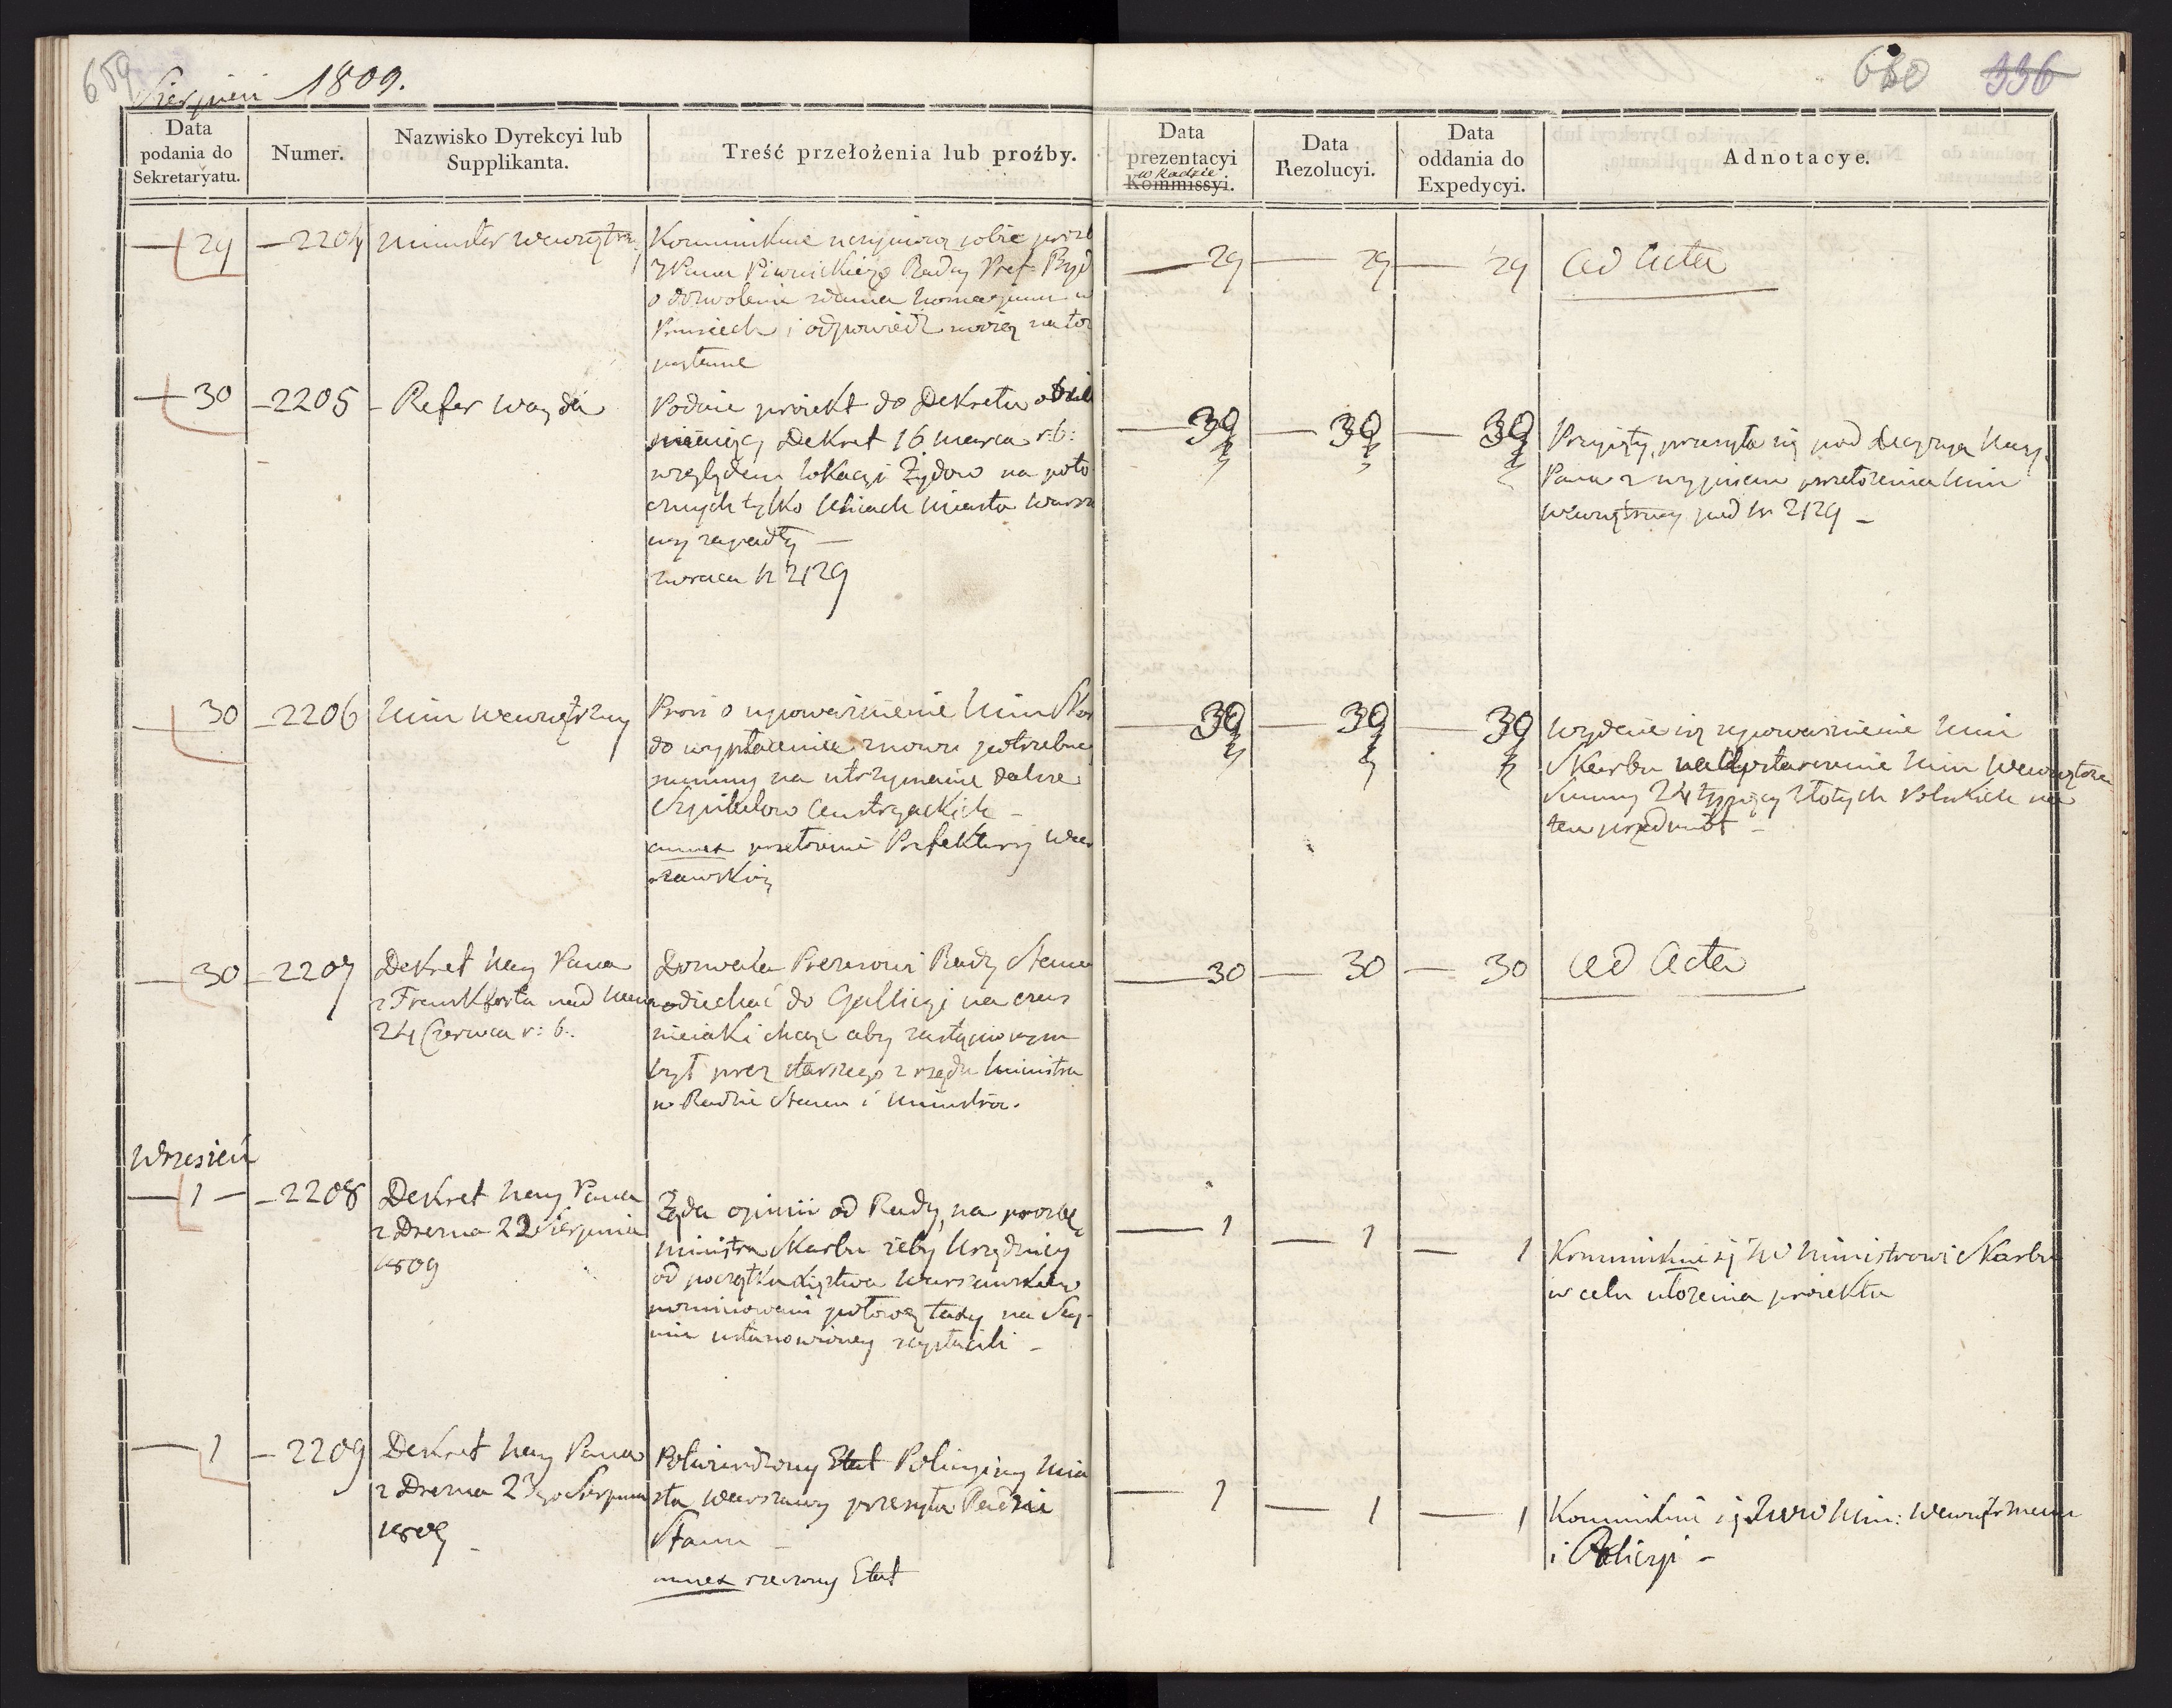 659
Sierpień 1809.
660 336
Data podania do Sekretaryatu.
Numer.
Nazwisko Dyrekcyi lub Supplikanta.
Treść przełożenia lub proźby.
Data prezentacyi w Radzie Kommissyi.
Data Rezolucyi.
Data oddania do Expedycyi.
Adnotacye.
29 — 2204 Minister Wewnętrzny
Kommunikuie uczynioną sobie prozb
o dozwolenie
Prusiech i odpowiedź swoią na to
29 — 29 — 29 ad Acta
30 — 2205 — Refer Wayda
Podaie proiekt do Dekretu
Dekret 16 Marca r: b:
względem lokacyi Żydow na
cznych tylko Ulicach Miasta Warsza
wy zapadły —
zwraca Nr 2129
Przyięty, przesyła się pod decyzyą Nay.
Pana z wypisem przełożenia Min
Wewnętrzny pod Nr 2129 —
30 — 2206 Min Wewnętrzny
Prosi o upoważnienie Min Skar
do wypłacenia znowu potrzebney
summy na utrzymanie dalsze
Szpitalow Austryackich —
annex przełożenie Prefektury War
szawskiey
Wydaie się upoważnienie Min
Skarbu na Min Wewnętrzn
Summy 24 tysięcy złotych Polskich na
ten przedmiot —
30 — 2207 Dekret Nay Pana
z Frankforta nad Menem
24 Czerwca r: b:
Dozwala Prezesowi Rady Stanu
odiechać do Gallicyi na czas
nieiaki chcąc aby zastąpionym
był przez starszego z rzędu Ministra
w Radzie Stanu i Ministrow.
30 — 30 — 30 ad Acta
Wrzesień
1 — 2208 Dekret Nay Pana
z Drezna 22 Sierpnia
1809
Żąda opinii od Rady, na prozbę
Ministra Skarbu żeby Urzędnicy
od początku Xięstwa Warszawskiego
nominowani połowę taxy na Sey-
mie ustanowioney zapłacili —
1 — 1 — 1 Kommunikuie się JW Ministrowi Skarbu
w celu ułożenia proiektu
1 — 2209 Dekret Nay Pana
z Drezna 23go Sierpnia
1809 —
Potwierdzony Etat Policyiny Mia
sta Warszawy przesyła Radzie
Stanu —
annex rzeczony Etat
1 — 1 — 1 Kommunikuie się JWW Min: Wewnętrznemu
i Policyi —